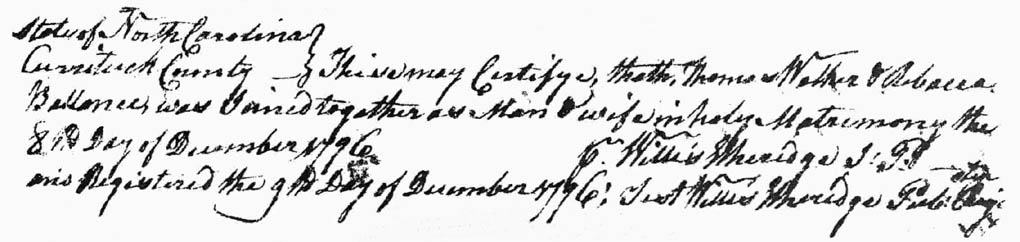 State of North Carolina }
Currituck County } These may Certifye, thath, Thomas Walker & Rebacca
Ballance, was Joined together as Man & wife in holy Matrimony the
8th Day of December 1796 Willis Etheridge J: P
Registered the 9th Day of December 1796: Test Willis Etheridge Pub: